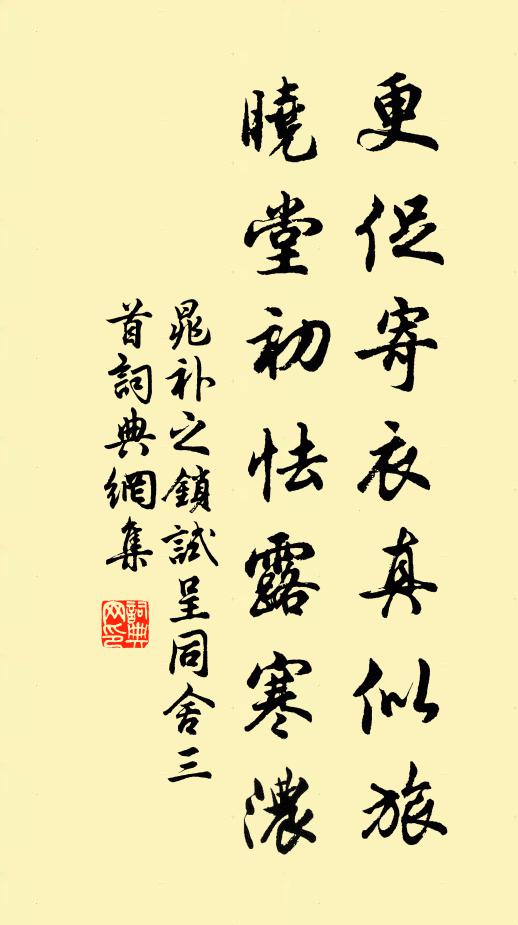 更促寄衣真似旅
曉堂初怯露寒濃
晁補之鎖試呈同舍三
首詞典網集
詞典
网印